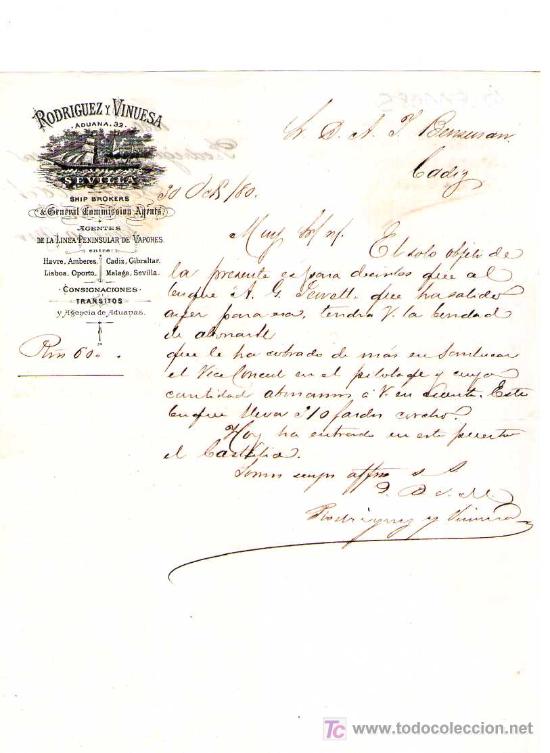 RODRIGUEZ Y VINUESA
ADUANA. 32.
SEVILLA
SHIP BROKERS
& General Commission Agents.
AGENTES
DE LA LINEA PENINSULAR DE VAPORES
entre
Havre, Amberes. Cadiz, Gibraltar.
Lisboa, Oporto. Malaga, Sevilla.
CONSIGNACIONES
TRÁNSITOS
y Agencia de Aduanas.
Sr. D. A. J. Bensusan
Cadiz
30 Oct /80.
Muy Sr. ntro. El solo objeto de
la presente es para decirlos que al
buque "A. G. Jewett" que ha salido
ayer para esa, tendra V. la bondad
de abonarle
Rvn 60
que le ha cobrado de más en Sanlucar
el Vice Consul en el pilotage y cuya
cantidad abonamos á V. en cuenta. Este
buque lleva 210 fardos corcho.
Hoy ha entrado en este puerto
el Castilla.
Somos suyos affmos s. s.
Q. B. S. M.
Rodriguez y Vinuesa
TC www.todocoleccion.net